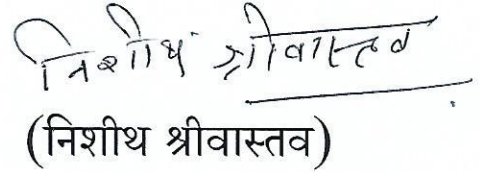 निशीथ श्रीवास्तव
(निशीथ श्रीवास्तव)